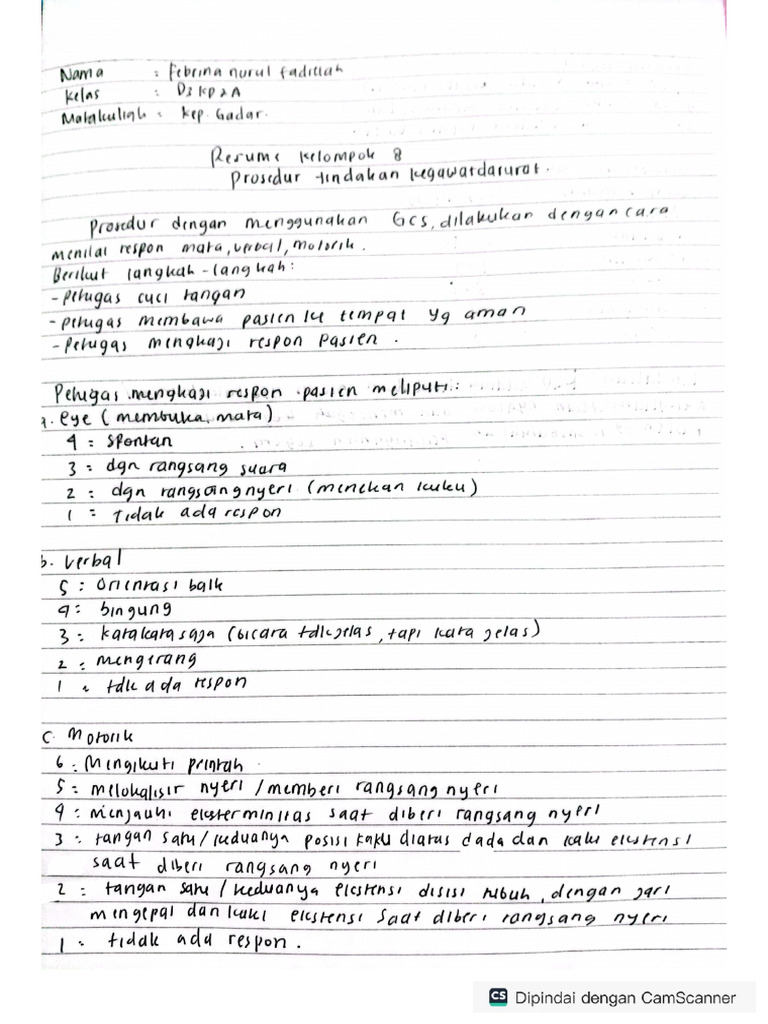 Nama : Febrina nurul fadillah
Kelas : D3 KP 2A
Matakuliah : Kep. Gadar.
Resume Kelompok 8
Prosedur tindakan kegawatdarurat.
Prosedur dengan menggunakan GCS, dilakukan dengan cara
menilai respon mata, verbal, motorik.
Berikut langkah-langkah:
- Petugas cuci tangan
- Petugas membawa pasien ke tempat yg aman
- Petugas mengkaji respon Pasien.
Petugas mengkaji respon pasien meliputi:
a. eye (membuka mata)
4 : spontan
3 : dgn rangsang suara
2 : dgn rangsang nyeri (menekan kuku)
1 : Tidak ada respon
b. verbal
5 : Orientasi baik
4 : bingung
3 : kata kata saja (bicara tdk jelas, tapi kata jelas)
2 : mengerang
1 : tdk ada respon
C. Motorik
6 : Mengikuti printah
5 : melokalisir nyeri / memberi rangsang nyeri
4 : Menjauhi eksterminitas saat diberi rangsang nyeri
3 : tangan satu / keduanya posisi kaku diatas dada dan kaki ekstensi
saat diberi rangsang nyeri
2 : tangan satu / keduanya ekstensi disisi tubuh, dengan jari
mengepal dan kaki ekstensi saat diberi rangsang nyeri
1 : tidak ada respon.
CS Dipindai dengan CamScanner